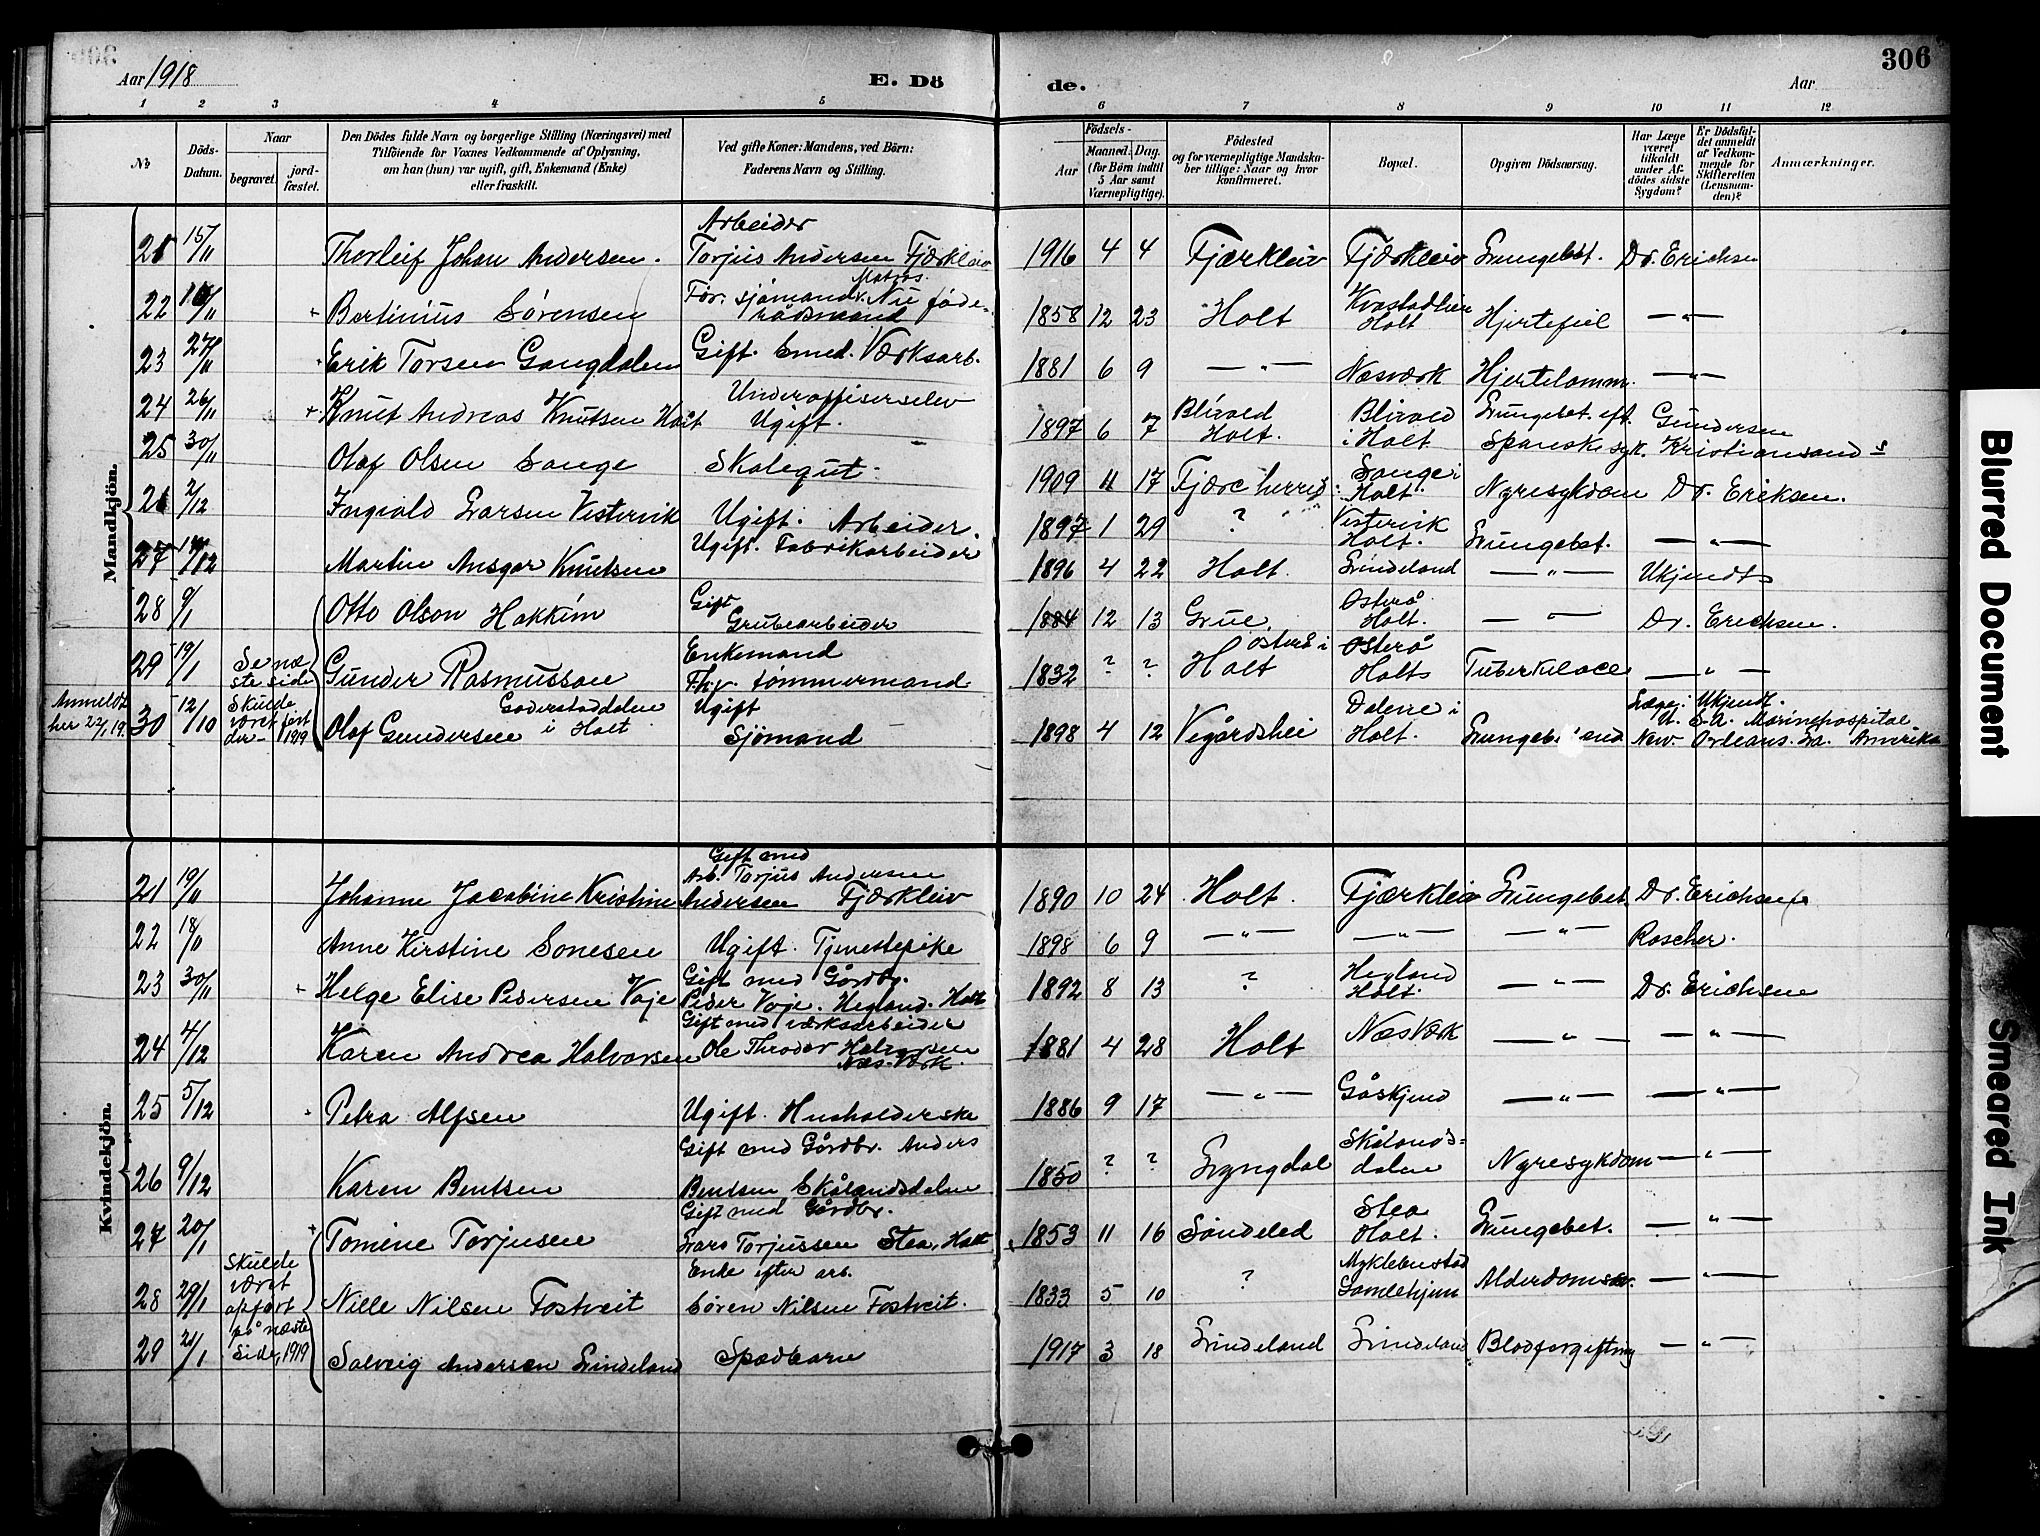 306
Aar 1918 E. Dö de. Aar
1 2 3 4 5 6 7 8 9 10 11 12
No
Döds-Datum.
Naar
begravet.
jord-fæstet.
Den Dödes fulde Navn og borgerlige Stilling (Næringsvei) med
Tilföiende for Voxnes Vedkommende af Oplysning,
om han (hun) var ugift, gift, Enkemand (Enke)
eller fraskilt.
Ved gifte Koner: Mandens, ved Börn:
Faderens Navn og Stilling.
Födsels-
Aar
Maaned.
Dag.
(for Börn indtil
5 Aar samt
Værnepligtige).
Födested
og for værnepligtige Mandska-
ber tillige: Naar og hvor
konfirmeret.
Bopæl.
Opgiven Dödsaarsag.
Har Læge
været
tilkaldt
under Af-
dödes sidste
Sygdom?
Er Dödsfal-
det anmeldt
af Vedkom-
mende for
Skifteretten
(Lensman-
den)?
Anmærkninger.
Mandkjön.
21 15/11 Thorleif Johan Andersen. Arbeider
Torjus Andersen Fjærkleiv 1916 4 4 Fjærkleiv Fjærkleiv Lungebet. Dr. Erichsen
22 11 + Bertinius Sörensen For. sjömand. Matros. Nu föde-
rådsmand 1858 12 23 Holt Kvastadlien
Holt Hjertefeil — " —
23 27/11 Erik Torsen Gangdalen Gift. Smed. Værksarb. 1881 6 9 — " — Næsværk Hjertelamm. — " —
24 26/11 + Knut Andreas Knutsen Holt Underoffiserselev
Ugift. 1897 6 7 Blivold
Holt. Blivold
i Holt Lungebet. eft.
Spanske syk. Gundersen
Kristiansand S
25 30/11 Olaf Olsen Songe Skolegut. 1909 11 17 Fjære herred Songe i
Holt. Nyresykdom Dr. Eriksen.
26 2/12 Ingvald Larsen Vestervik Ugift. Arbeider. 1897 1 29 ? Vestervik
Holt. Lungebet. — " —
27 12 Martin Ansgar Knutsen Ugift. Fabrikarbeider 1896 4 22 Holt. Lindeland — " — Ukjendt
28 9/1 Otto Olson Hakkim Gift
Grubearbeider 1884 12 13 Grue. Osterå
Holt. — " — Dr. Erichsen.
29 19/1 Se næ
ste side Gunder Rasmusson Enkemand
Fhv. tömmermand 1832 ? ? Osterå i
Holt Osterå
Holts Tuberkilose — " —
Anmeldt
her 22/1 19. 30 12/10 Skulde
været fört
der— 1919 Olaf Gundersen Goderstaddalen
i Holt Ugift
Sjömand 1898 4 12 Vegårdshei Dalene i
Holt. Læge: Ukjendt.
U. S. A. Marinehospital
New. Orleans. La. Amerika
Kvindekjön.
21 19/11 Johanne Jacobine Kristine Andersen Gift med
Arb. Torjus Andersen
Fjærkleiv 1890 10 24 Holt. Fjærkleiv Lungebet. Dr. Erichsen
22 18/ Anne Kirstine Sonesen Ugift. Tjenestepike 1898 6 9 — " — — " — — " — Roscher.
23 30/11 + Helge Elise Pedersen Voje Gift med Gårdbr.
Peder Voje. Hegland. Holt 1892 8 13 ? Hegland
Holt. — " — Dr. Erichsen
24 4/12 Karen Andrea Halvorsen Gift med værksarbeider
Ole Throder Halvorsen
Næs Værk. 1881 4 28 Holt Næs Værk — " — — " —
25 5/12 Petra Alfsen Ugift. Husholderske 1886 9 17 — " — Gåskjend — " — — " —
26 9/12 Karen Bentsen Gift med Gårdbr. Anders
Bentsen Skålandsdalen 1850 ? ? Lyngdal Skålands=
dalen Nyresykdom — " —
27 20/1 + Tomine Torjusen Gift med Gårdbr.
Lars Torjussen Stea, Holt 1853 11 16 Söndeled Stea
Holt. Lungebet. — " —
Skulde
været
opfört
på næste
Side, 1919
28 29/1 Nille Nilsen Fostveit Enke efter arb.
Sören Nilsen Fostveit. 1833 5 10 ? Myklebustad
Gamlehjem Alderdomssv. — " —
29 21/1 Solveig Andersen Lindeland Spædbarn 1917 3 18 Lindeland Lindeland Blodforgiftning — " —
Blurred Document
Smeared Ink